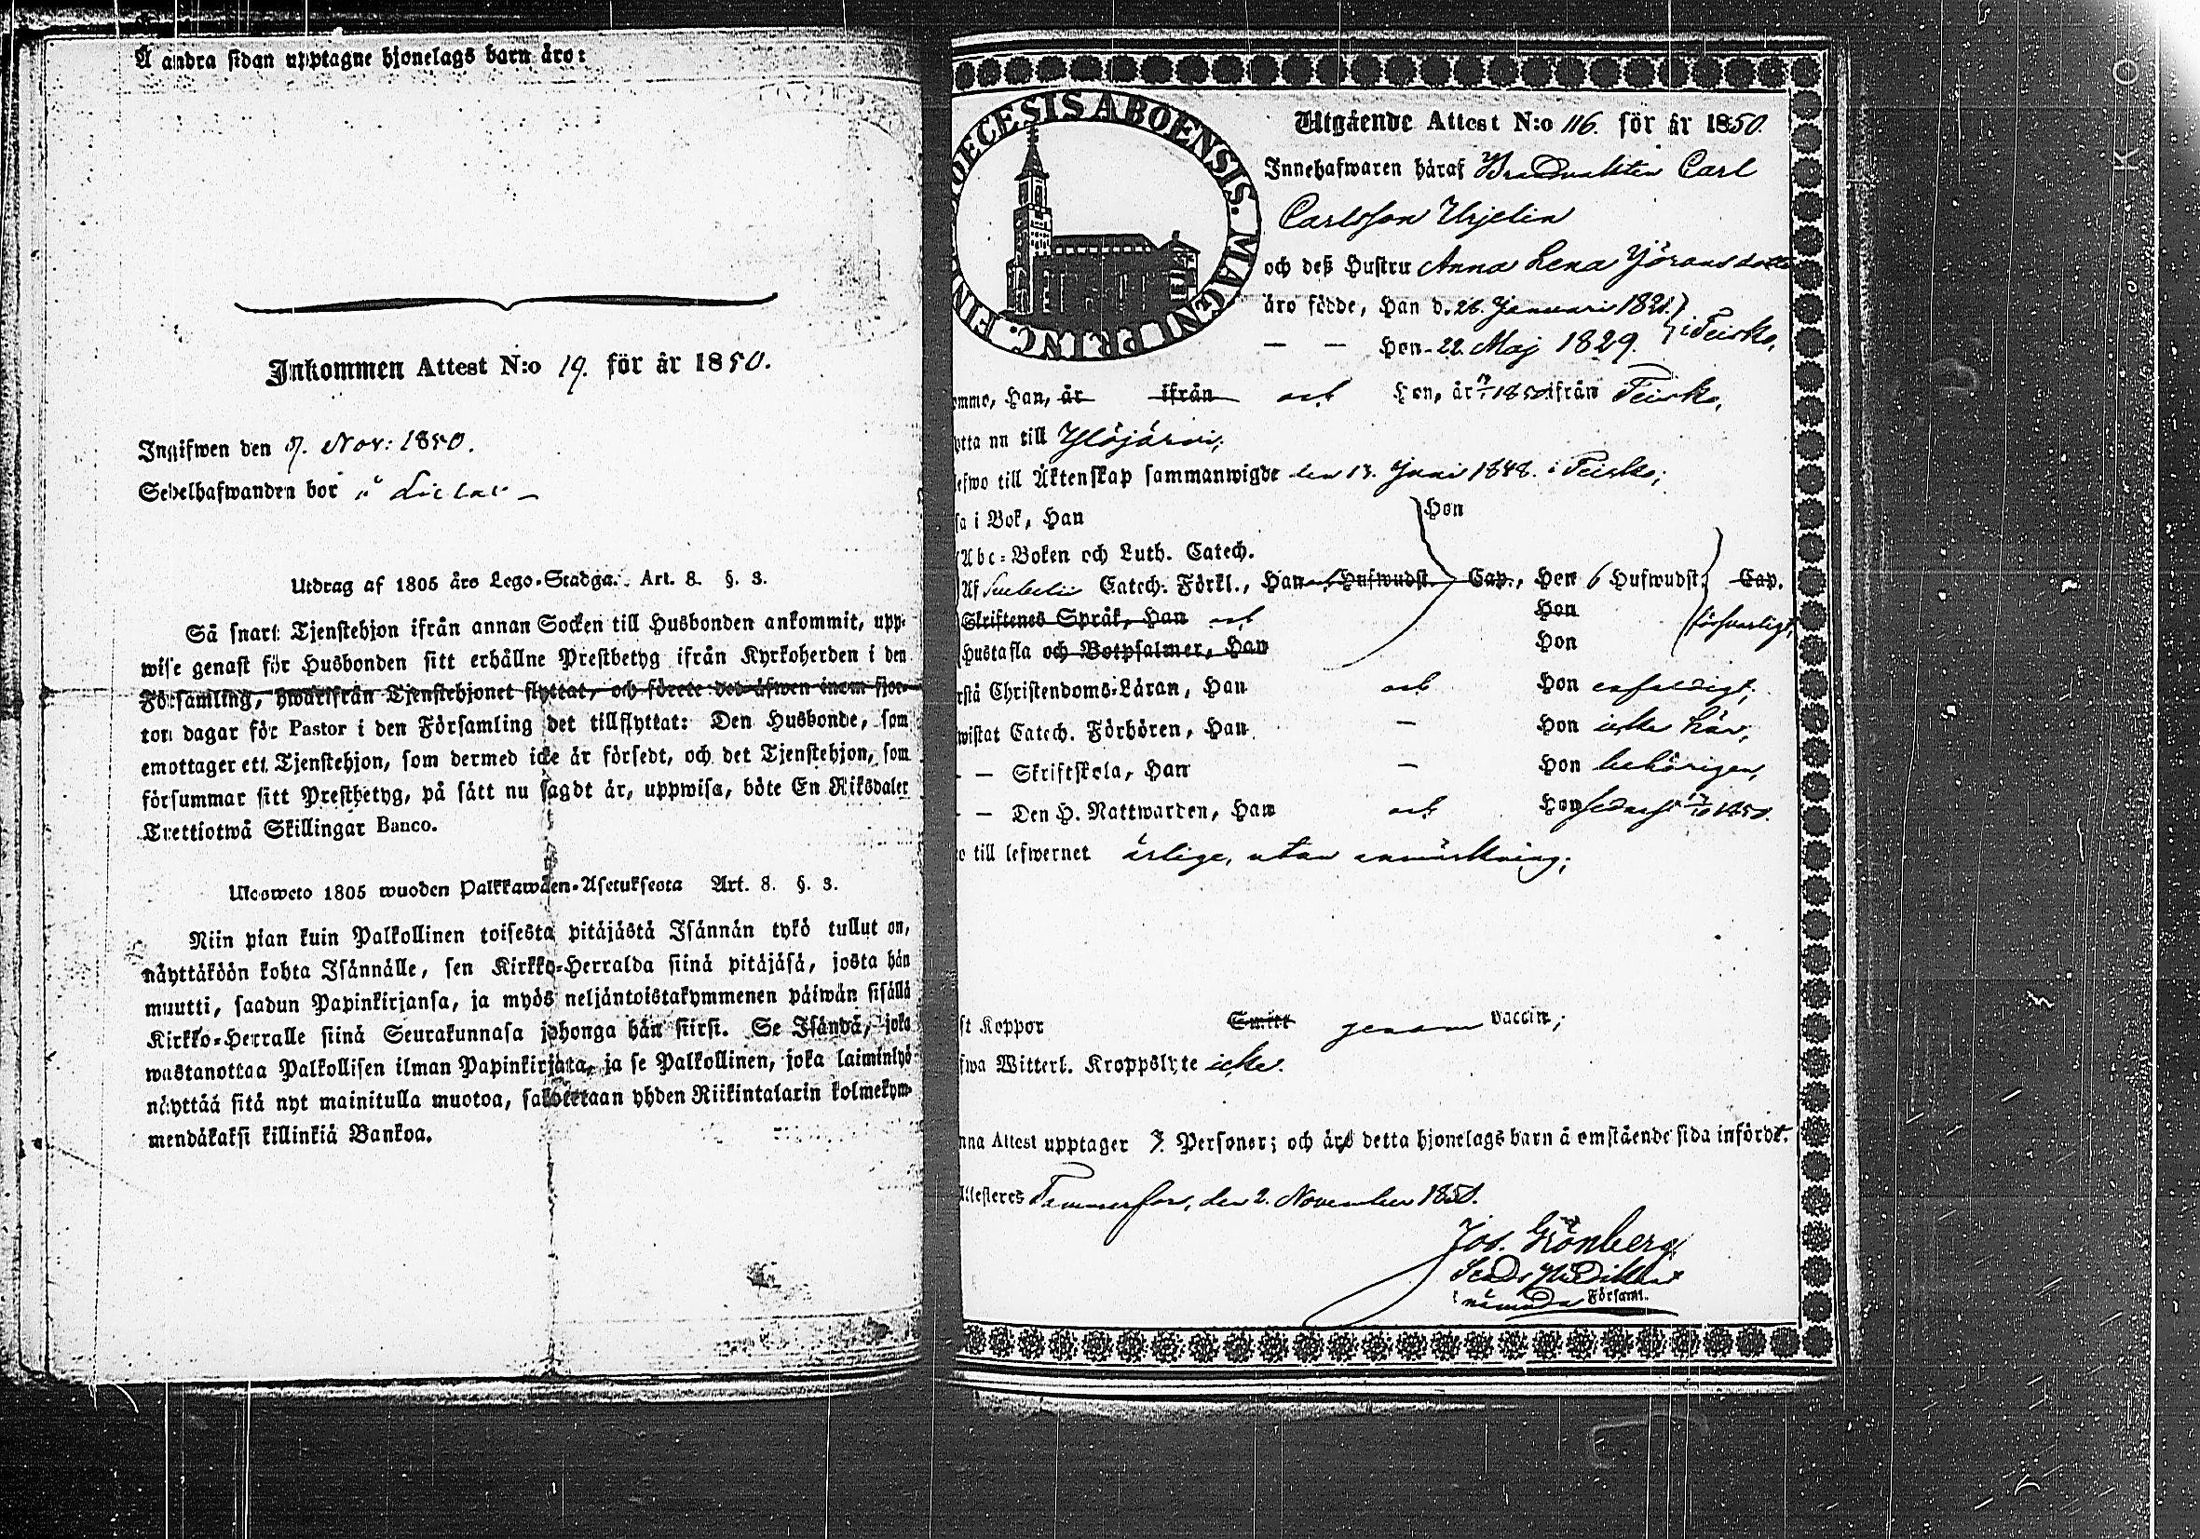 Å andra sidan upptagne hjonelags barn äro:
Inkommen Attest N:o 19. för år 1850.
Ingifwen den 9. Nov: 1850.
Sedelhafwanden bor å
Utdrag af 1805 års Lego-Stadga. Art. 8. §. 3.
Så snart Tjenstehjon ifrån annan Socken till Husbonden ankommit, upp-
wise genast för Husbonden sitt erhållne Prestbetyg ifrån Kyrkoherden i den
Församling, hwarifrån Tjenstehjonet flyttat, och förete det äfwen inom fjor-
ton dagar för Pastor i den Församling det tillflyttat: Den Husbonde, som
emottager ett Tjenstehjon, som dermed icke är försedt, och det Tjenstehjon, som
försummar sitt Prestbetyg, på sätt nu sagdt är, uppwisa, böte En Riksdaler
Trettiotwå Skillingar Banco.
Ulosweto 1805 wuoden Palkkawäen-Asetuksesta Art. 8. §. 3.
Niin pian kuin Palkollinen toisesta pitäjästä Isännän tykö tullut on,
näyttäköön kohta Isännälle, sen Kirkko-Herralda siinä pitäjäsä, josta hän
muutti, saadun Papinkirjansa, ja myös neljäntoistakymmenen päiwän sisällä
Kirkko-Herralle siinä Seurakunnasa johonga hän siirsi. Se Isändä, joka
wastanottaa Palkollisen ilman Papinkirjata, ja se Palkollinen, joka laiminlyö
näyttää sitä nyt mainitulla muotoa, sakotetaan yhden Riikintalarin kolmekym-
mendäkaksi killinkiä Bankoa.
DIOECESIS ABOENSIS. MAGNI PRINC. FIN
Utgående Attest N:o 116. för år 1850.
Innehafwaren häraf Brandvakten Carl
Carlsson Urjelin
och deß Hustru Anna Lena Jöransdotter
äro födde, Han d. 26. Januari 1821. } i Teisko,
— — Hon 22. Maj 1829.
omme, Han, är ifrån och Hon, är 1850 ifrån Teisko,
ytta nu till Ylöjärvi;
efwo till Äktenskap sammanwigde den 13. Juni 1848. i Teisko;
sa i Bok, Han Hon
Abc-Boken och Luth. Catech.
Af Svebelii Catech. Förkl., Han och Hufwudst. Cap., Hon 6 Hufwudst. Cap.
Skriftenes Språk, Han och Hon försvarligt,
Hustafla och Botpsalmer, Han Hon
rstå Christendoms-Läran, Han och Hon enfaldigt;
wistat Catech. Förhören, Han — Hon icke här,
— — Skriftskola, Han — Hon behörigen,
— — Den H. Nattwarden, Han och Hon sednast 1850.
o till lefwernet ärlige, utan anmärkning;
st Koppor Smitt genom vaccin;
fwa Witterl. Kroppslyte icke.
nna Attest upptager Personer; och äro detta hjonelags barn å omstående sida införde.
Attesteres Tammerfors, den 2. November 1850.
Jos. Grönberg
i nämnda Församl.